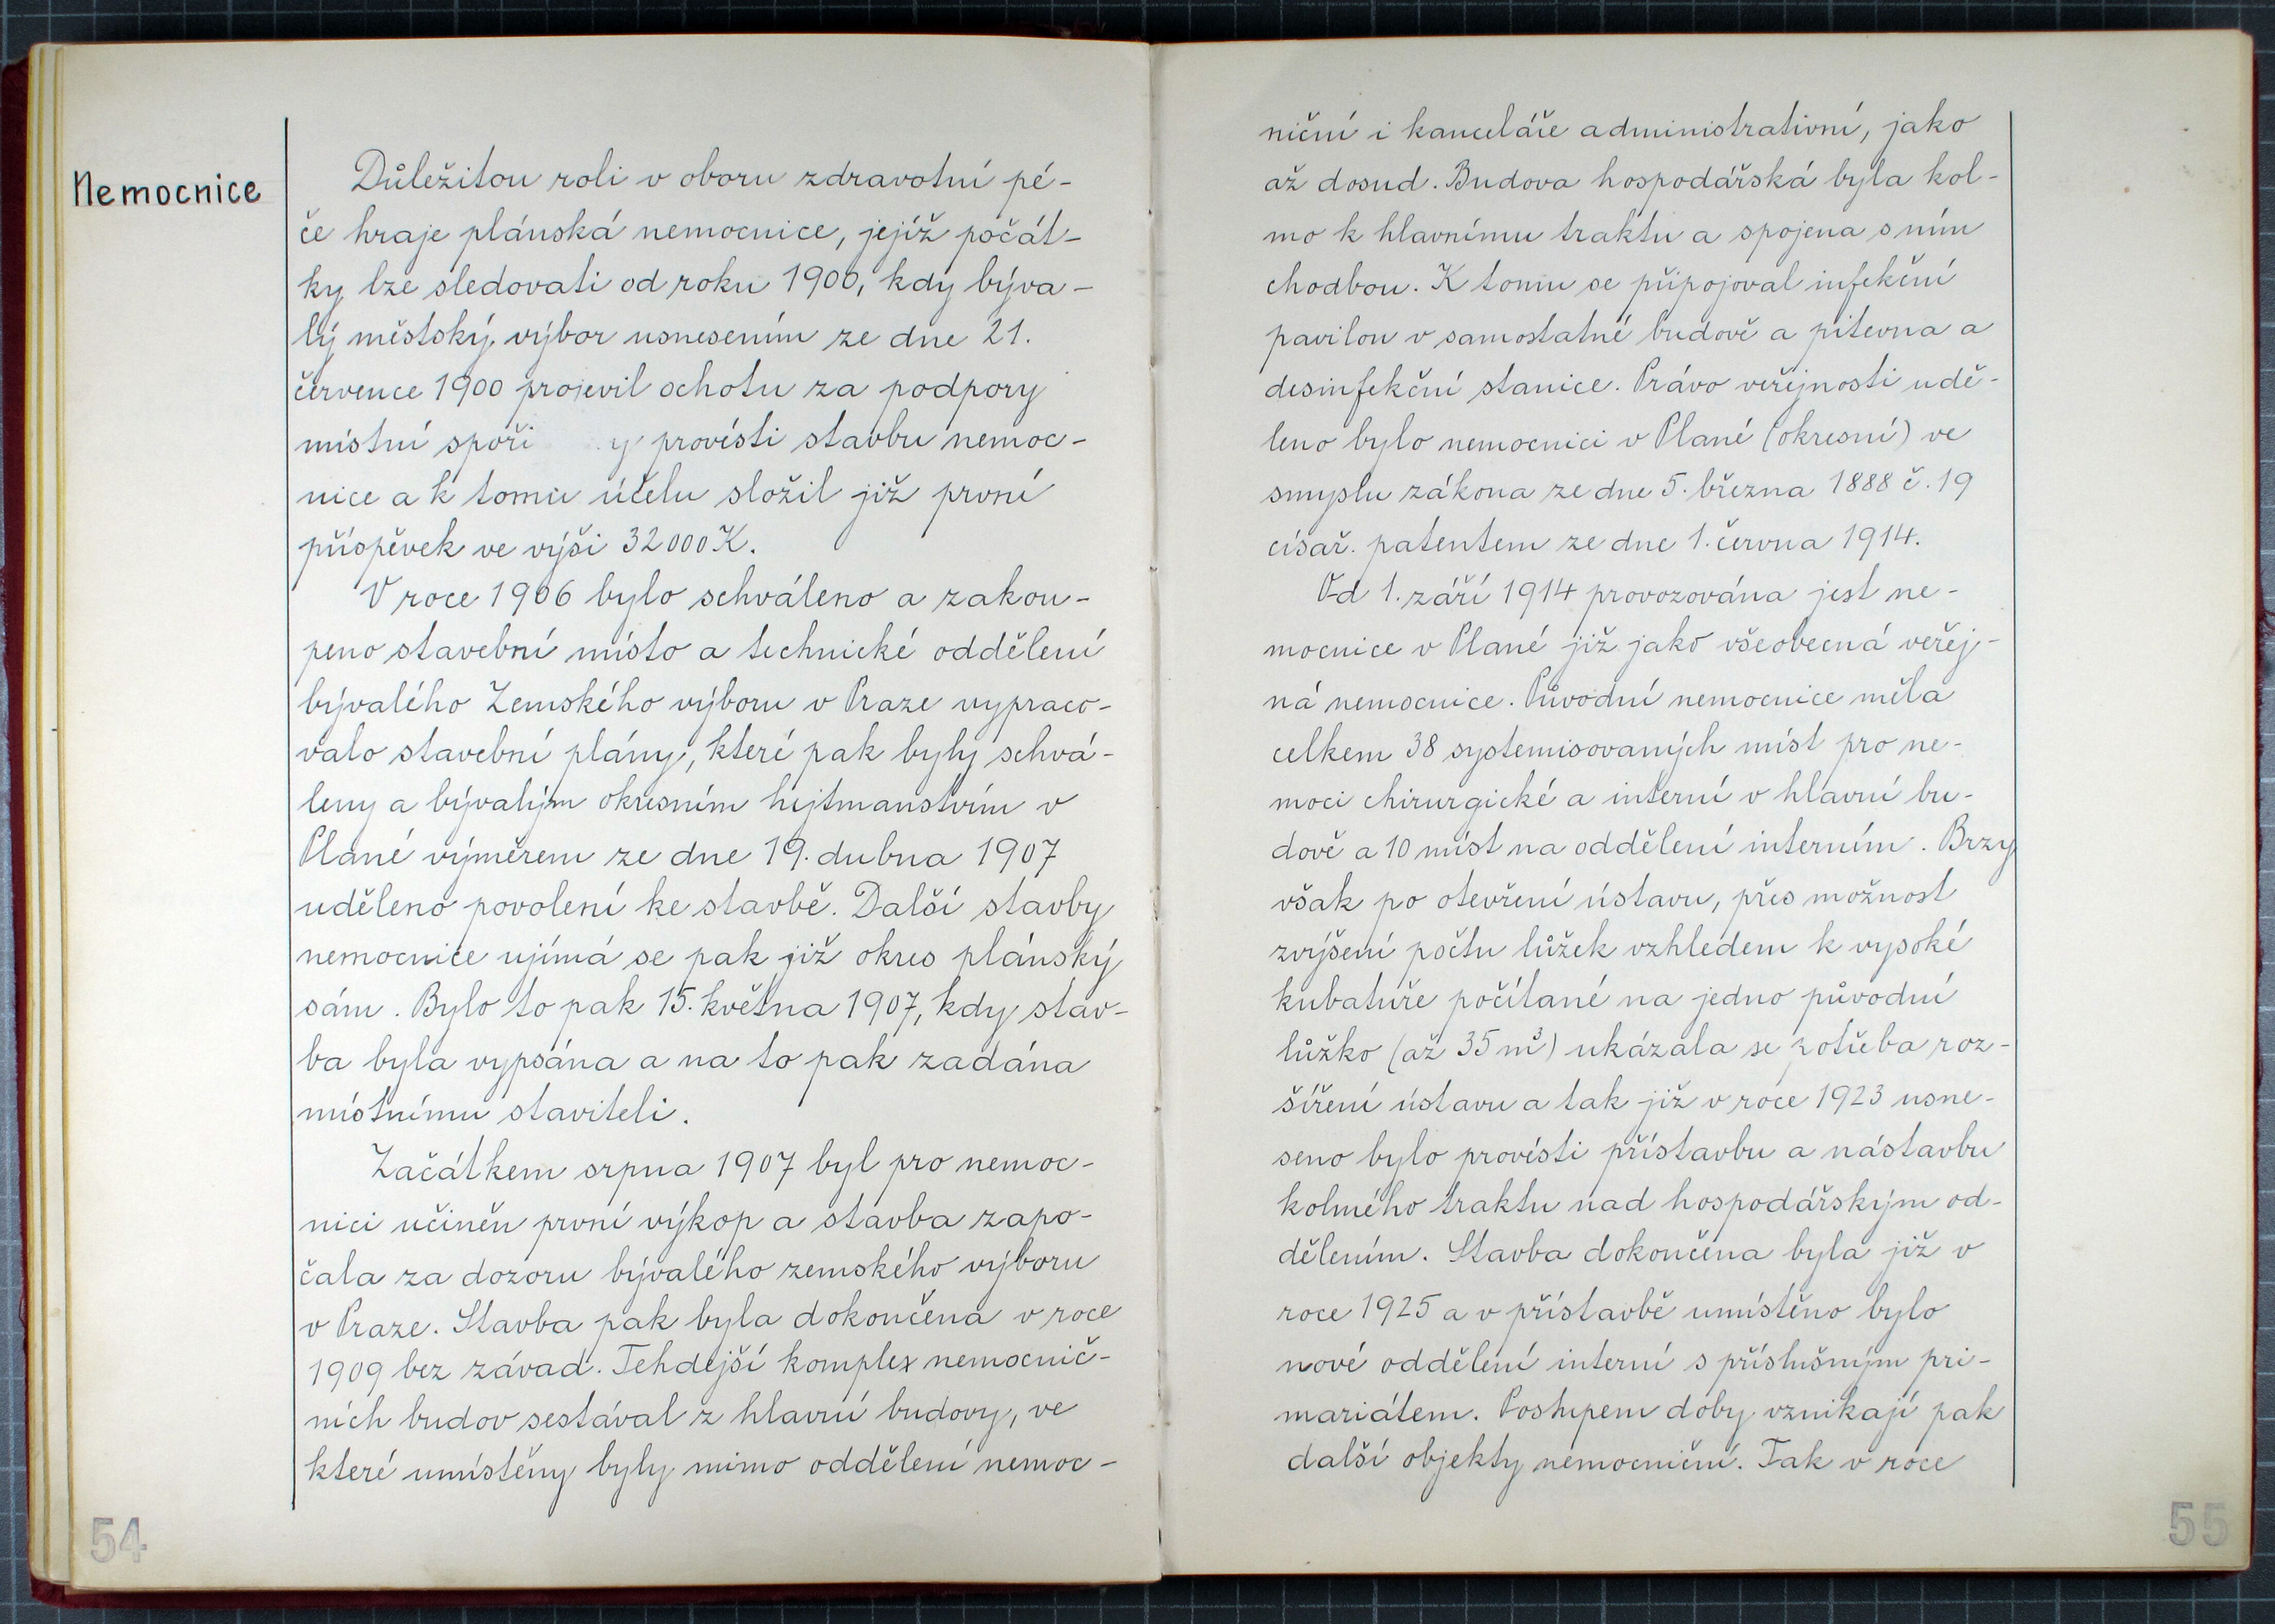 Nemocnice
Důležitou roli v oboru zdravotní pé-
če hraje plánská nemocnice, jejíž počát-
ky lze sledovati od roku 1900, kdy býva-
lý městský výbor usnesením ze dne 21.
července 1900 projevil ochotu za podpory
místní spoři y provésti stavbu nemoc-
nice a k tomu účelu složil již první
příspěvek ve výši 32000 K.
V roce 1906 bylo schváleno a zakou-
peno stavební místo a technické oddělení
bývalého Zemského výboru v Praze vypraco-
valo stavební plány, které pak byly schvá-
leny a bývalým okresním hejtmanstvím v
Plané výměrem ze dne 19. dubna 1907
uděleno povolení ke stavbě. Další stavby
nemocnice ujímá se pak již okres plánský
sám. Bylo to pak 15. května 1907, kdy stav-
ba byla vypsána a na to pak zadána
místnímu staviteli.
Začátkem srpna 1907 byl pro nemoc-
nici učiněn první výkop a stavba zapo-
čala za dozoru bývalého zemského výboru
v Praze. Stavba pak byla dokončena v roce
1909 bez závad. Tehdejší komplex nemocnič-
ních budov sestával z hlavní budovy, ve
které umístěny byly mimo oddělení nemoc-
54
niční i kanceláře administrativní, jako
až dosud. Budova hospodářská byla kol-
mo k hlavnímu traktu a spojena s ním
chodbou. K tomu se připojoval infekční
pavilon v samostatné budově a pitevna a
desinfekční stanice. Právo veřejnosti udě-
leno bylo nemocnici v Plané (okresní) ve
smyslu zákona ze dne 5. března 1888 č. 19
císař. patentem ze dne 1. června 1914.
Od 1. září 1914 provozována jest ne-
mocnice v Plané již jako všeobecná veřej-
ná nemocnice. Původní nemocnice měla
celkem 38 systemisovaných míst pro ne-
moci chirurgické a interní v hlavní bu-
dově a 10 míst na oddělení interním. Brzy
však po otevření ústavu, přes možnost
zvýšení počtu lůžek vzhledem k vysoké
kubatuře počítané na jedno původní
lůžko (až 35 m³) ukázala se potřeba roz-
šíření ústavu a tak již v roce 1923 usne-
seno bylo provésti přístavbu a nástavbu
kolmého traktu nad hospodářským od-
dělením. Stavba dokončena byla již v
roce 1925 a v přístavbě umístěno bylo
nové oddělení interní s příslušným pri-
mariátem. Postupem doby vznikají pak
další objekty nemocniční. Tak v roce
55